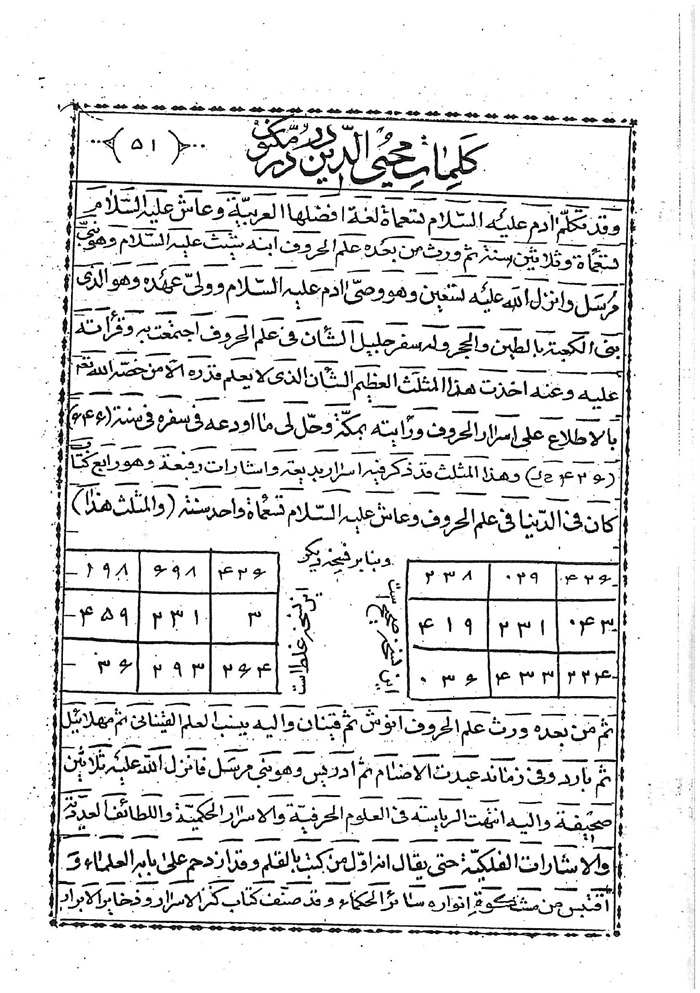 (٥١)
كلمات محيى الدين در در مكنون
وقد تكلّم ادم عليه السّلام تسعمأة لغة افضلها العربيّة وعاش عليه السّلام
تسعمأة وثلاثين سنة ثم ورث من بعده علم الحروف ابنه شيث عليه السّلام وهو نبىّ
مرسل وانزل الله عليه تسعين وهو وصىّ ادم عليه السّلام وولىّ عهده وهو الذى
بنى الكعبة بالطين والحجر وله سفر جليل الشأن فى علم الحروف اجتمعت به وقرأته
عليه وعنه اخذت هذا المثلث العظيم الشأن الذى لا يعلم قدره الّا من خصّه الله تعم
بالاطلاع على اسرار الحروف ورأيته بمكّة وحلّ لى ما اودعه فى سفره فى سنة (۶۴۶)
وهذا المثلث قد ذكر فيه اسرار بديعة واشارات رفيعة وهو رابع كتاب
كان فى الدّنيا فى علم الحروف وعاش عليه السّلام تسعمأة واحد سنة (والمثلث هذا)
وبنابر نسخه ديكر
۴۲۶ ۰۲۹ ۲۳۸
۰۴۳ ۲۳۱ ۴۱۹
۲۲۴ ۴۳۳ ۰۳۶
اين نسخه صحيح است
اين نسخه غلط است
۴۲۶ ۶۹۸ ۱۹۸
۳ ۲۳۱ ۴۵۹
۲۶۴ ۲۹۳ ۳۶
ثم من بعده ورث علم الحروف انوش ثم قينان واليه ينسب العلم القينانى ثم مهلائيل
ثم يارد وفى زمانه عبدت الاصنام ثم ادريس وهو نبى مرسل فانزل الله عليه ثلاثين
صحيفة واليه انتهت الرياسة فى العلوم الحرفيّة والاسرار الحكميّة واللطائف العدديّة
والاشارات الفلكيّة حتى يقال انه اوّل من كتب بالقلم وقد ازدحم على بابه العلماء و
اقتبس من مشكوة انواره سائر الحكماء وقد صنّف كتاب كنز الاسرار وذخاير الابرار